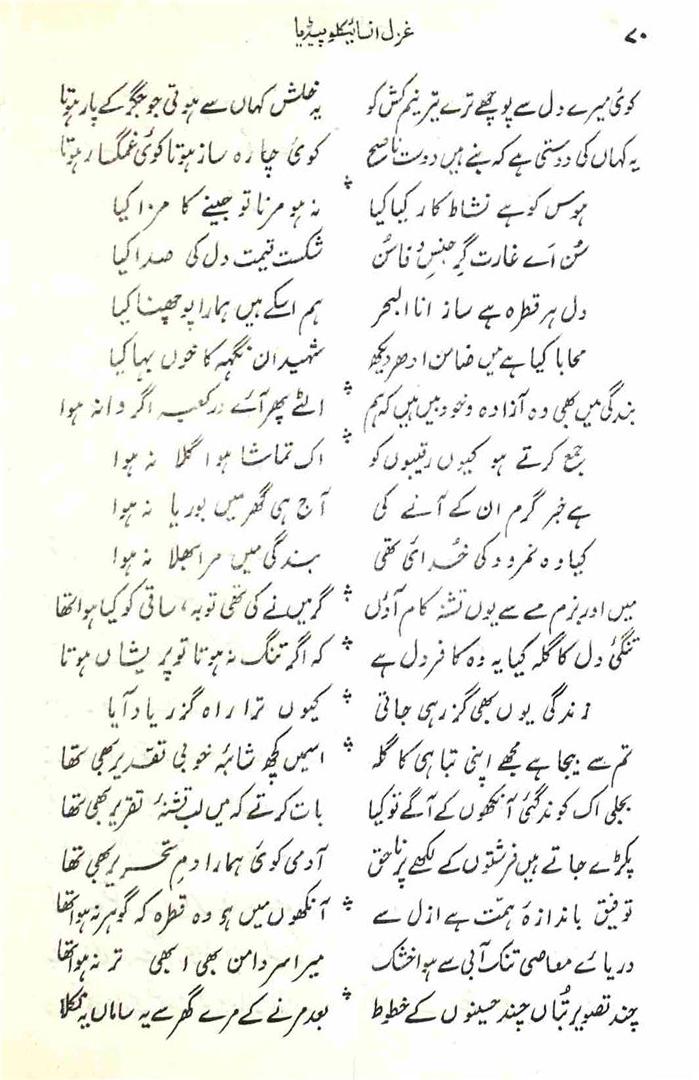 ۷۰ غزل انسائیکلوپیڈیا
کوئی میرے دل سے پوچھے ترے تیر نیم کش کو یہ خلش کہاں سے ہوتی جو جگر کے پار ہوتا
یہ کہاں کی دوستی ہے کہ بنے ہیں دوست ناصح کوئی چارہ ساز ہوتا کوئی غمگسار ہوتا
ہوس کو ہے نشاط کار کیا کیا نہ ہو مرنا تو جینے کا مزا کیا
سُن اے غارت گرِ جنسِ وفا سُن شکست قیمت دل کی صدا کیا
دل ہر قطرہ ہے ساز انا البحر ہم اسکے ہیں ہمارا پوچھنا کیا
محابا کیا ہے میں ضامن ادھر دیکھ شہیدان نگہہ کا خوں بہا کیا
بندگی میں بھی وہ آزادہ و خود بیں ہیں کہ ہم الٹے پھر آئے در کعبہ اگر وا نہ ہوا
جمع کرتے ہو کیوں رقیبوں کو اک تماشا ہوا گلا نہ ہوا
ہے خبر گرم ان کے آنے کی آج ہی گھر میں بوریا نہ ہوا
کیا وہ نمرود کی خُدائی تھی بندگی میں مرا بھلا نہ ہوا
میں اور بزم مے سے یوں تشنہ کام آؤں گر میں نے کی تھی توبہ، ساقی کو کیا ہوا تھا
تنگیٔ دل کا گلہ کیا یہ وہ کافر دل ہے کہ اگر تنگ نہ ہوتا تو پریشاں ہوتا
زندگی یوں بھی گزر ہی جاتی کیوں ترا راہ گزر یاد آیا
تم سے بیجا ہے مجھے اپنی تباہی کا گلہ اسمیں کچھ شائبۂ خوبی تقدیر بھی تھا
بجلی اک کوند گئی آنکھوں کے آگے تو کیا بات کرتے کہ میں لب تشنۂ تقریر بھی تھا
پکڑے جاتے ہیں فرشتوں کے لکھے پر ناحق آدمی کوئی ہمارا دم تحریر بھی تھا
توفیق باندازۂ ہمّت ہے ازل سے آنکھوں میں ہو وہ قطرہ کہ گوہر نہ ہوا تھا
دریائے معاصی تنک آبی سے ہوا خشک میرا سردامن بھی ابھی تر نہ ہوا تھا
چند تصویر بُتاں چند حسینوں کے خطوط بعد مرنے کے مرے گھر سے یہ ساماں نکلا